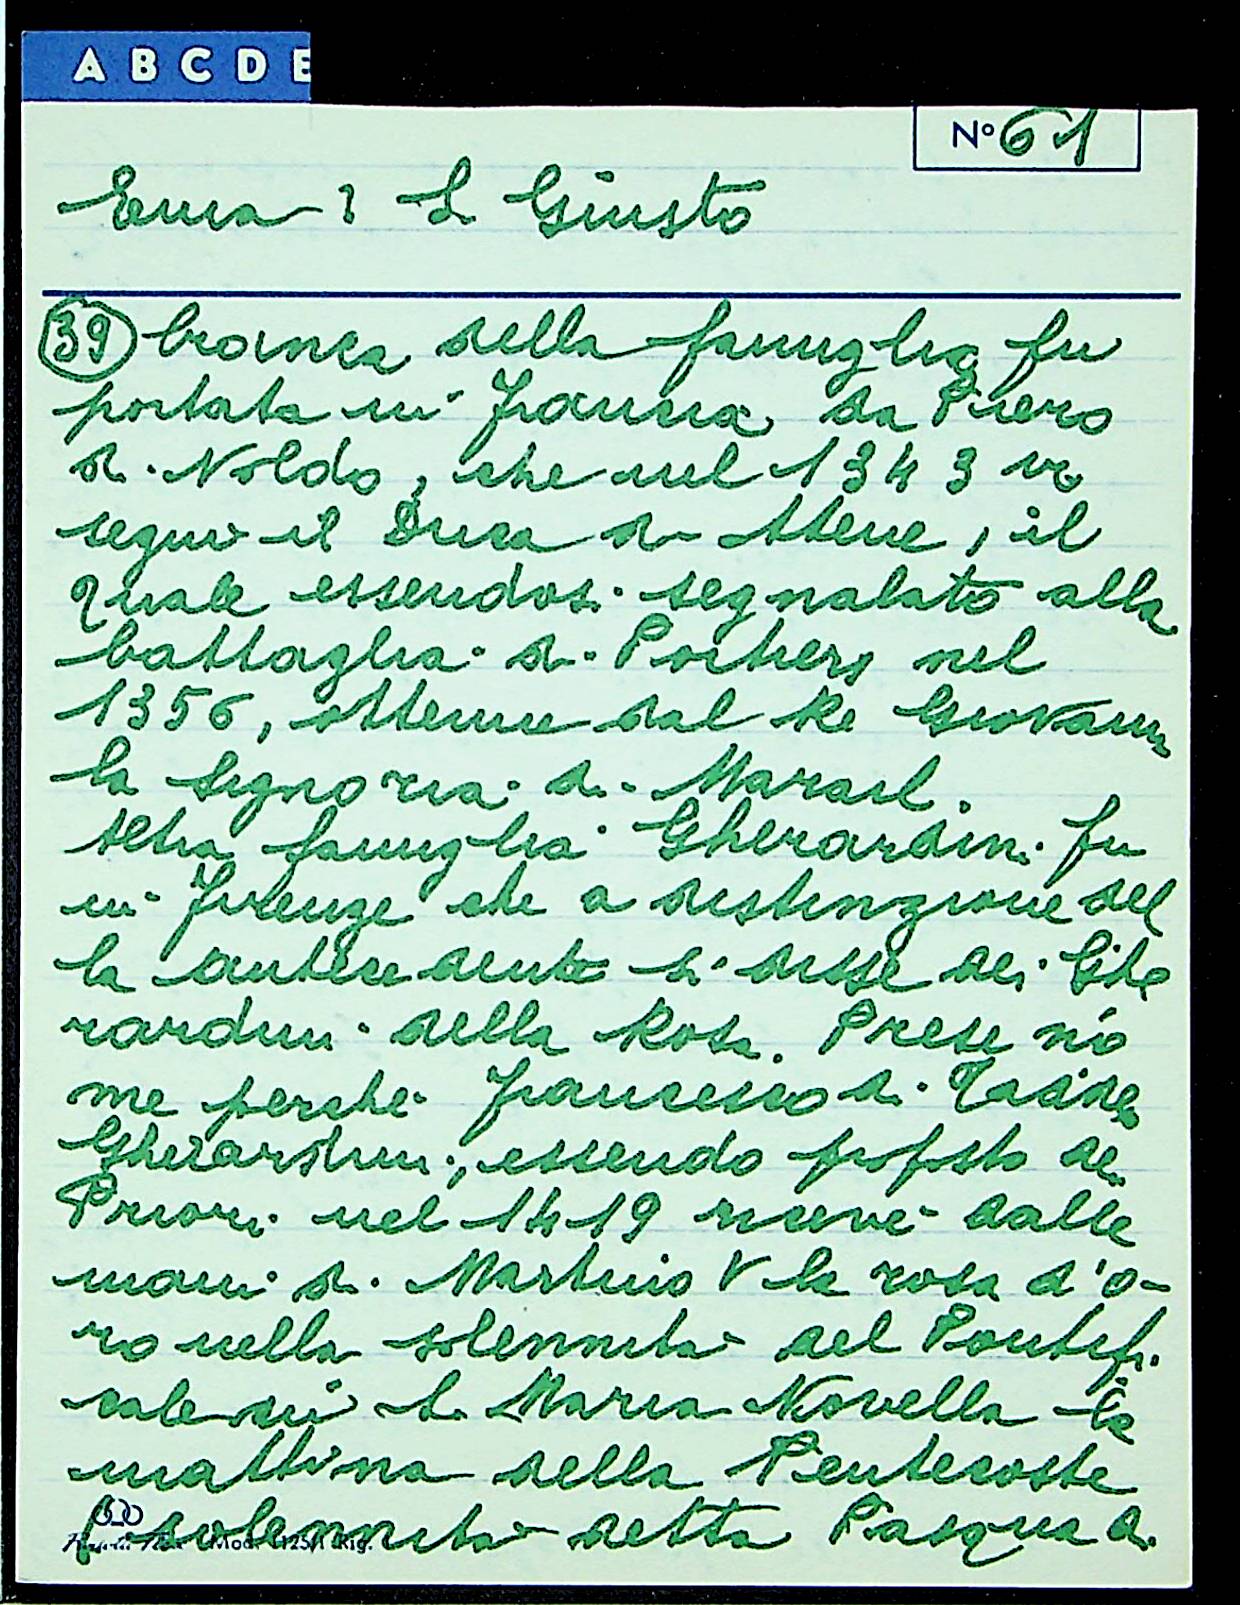 A B C D E
N° 61
Ema : S. Giusto
39 branca della famiglia fu
portata in Francia da Piero
di Noldo, che nel 1343 vi
seguì il Duca di Atene, il
quale essendosi segnalato alla
battaglia di Poitiers nel
1356, ottenne dal Re Giovanni
la Signoria di Marail.
Altra famiglia Gherardini fu
in Firenze che a distinzione del
la antecedente si disse dei Ghe
rardini della Rosa. Prese no
me perché Francesco di
Gherardini, essendo proposto dei
Priori nel 1419 ricevé dalle
mani di Martino V la rosa d'o-
ro nella solennità del Pontifi
cale in S. Maria Novella la
mattina della Pentecoste
solennità detta Pasqua di
Mod. Rig.